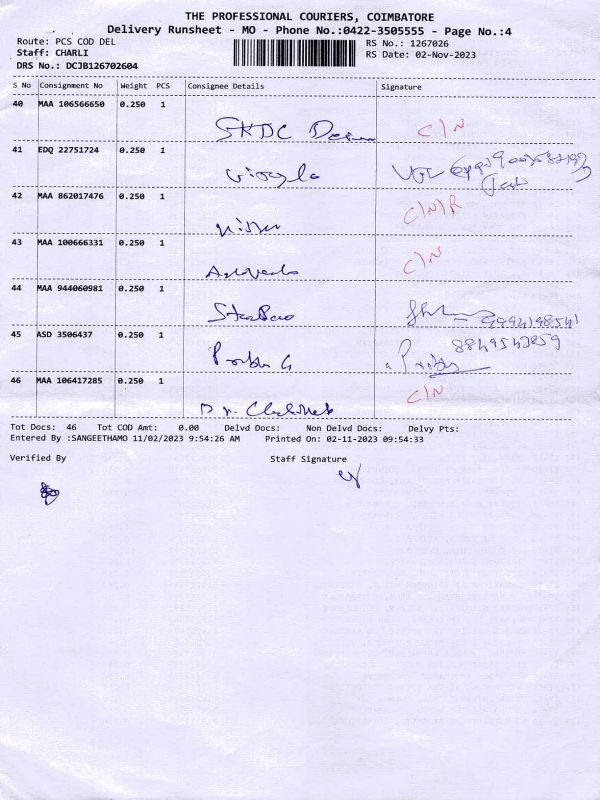 THE PROFESSIONAL COURIERS, COIMBATORE
Delivery Runsheet - MO - Phone No.:0422-3505555 - Page No.:4
Route: PCS COD DEL
RS No.: 1267026
Staff: CHARLI
RS Date: 02-Nov-2023
DRS No.: DCJB126702604
S No Consignment No Weight PCS Consignee Details Signature
40 MAA 106566650 0.250 1
SKDC C/N
41 EDQ 22751724 0.250 1
42 MAA 862017476 0.250 1
C/N/R
43 MAA 100666331 0.250 1
C/N
44 MAA 944060981 0.250 1
45 ASD 3506437 0.250 1
46 MAA 106417285 0.250 1
C/N
Tot Docs: 46 Tot COD Amt: 0.00 Delvd Docs: Non Delvd Docs: Delvy Pts:
Entered By :SANGEETHAMO 11/02/2023 9:54:26 AM Printed On: 02-11-2023 09:54:33
Verified By Staff Signature